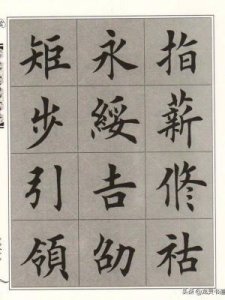 指薪修祜
永綏吉劭
矩步引領